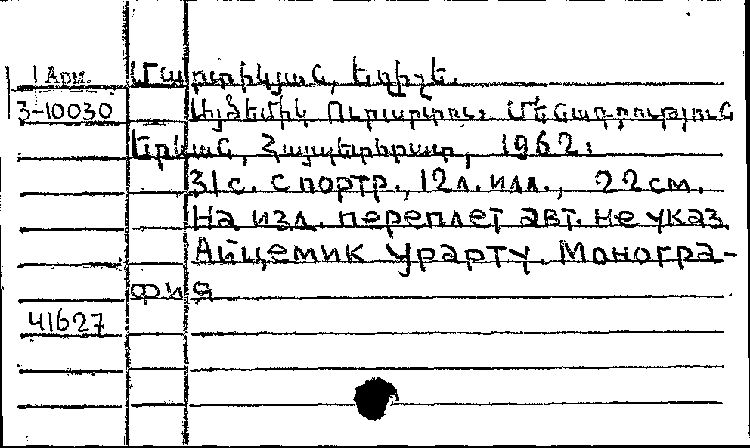 1 Арм. Մարտիկյան, Եղիշե.
3-10030 Այծեմիկ Ուրարտու: Մենագրություն
Երևան, Հայպետհրատ, 1962:
31 с. с портр., 12 л. илл., 22 см.
На изд. переплет авт. не указ.
Айцемик Урарту. Моногра-
фия
41627